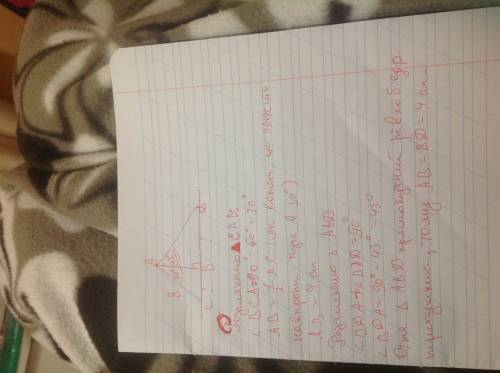 A
8 60° 45°
C B D
② Розглянемо △ CAB:
∠ BCA = 90° - 60° = 30°
AB = ½ AC (як катет, що лежить
навпроти кута в 30°)
AB = 4 см
Розглянемо △ ABD
∠BDA + ∠BAD = 90°
∠BDA = 90° - 45° = 45°
Отже △ ABD прямокутний рівнобедр.
трикутник, тому AB = BD = 4 см